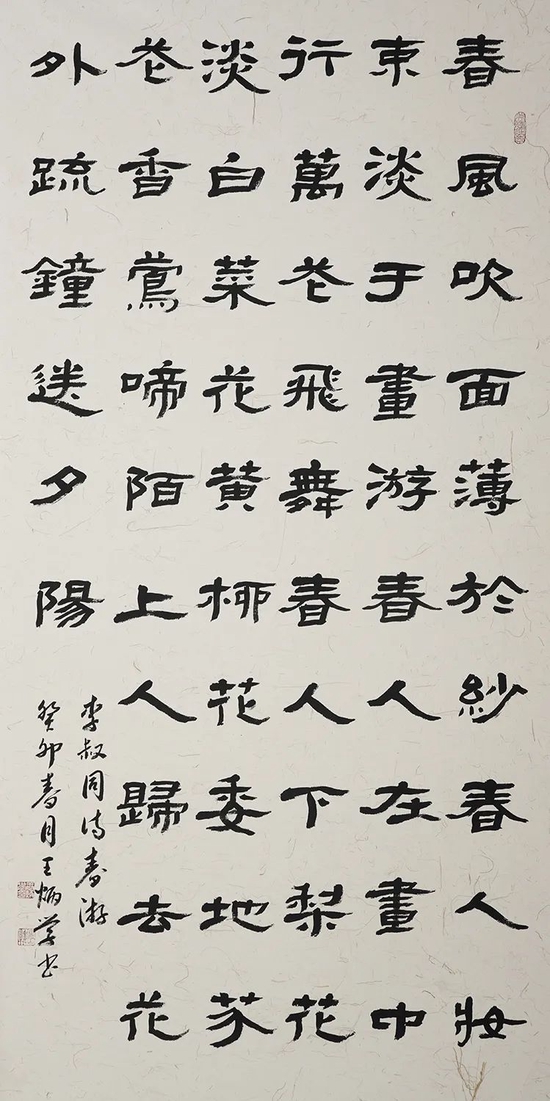 春風吹面薄於紗春人妝
束淡于畫游春人在畫中
行萬芲飛舞春人下梨花
淡白菜花黄柳花委地芥
芲香鶯啼陌上人歸去花
外疏鐘送夕陽
李叔同诗春游
癸卯春月王炳学书